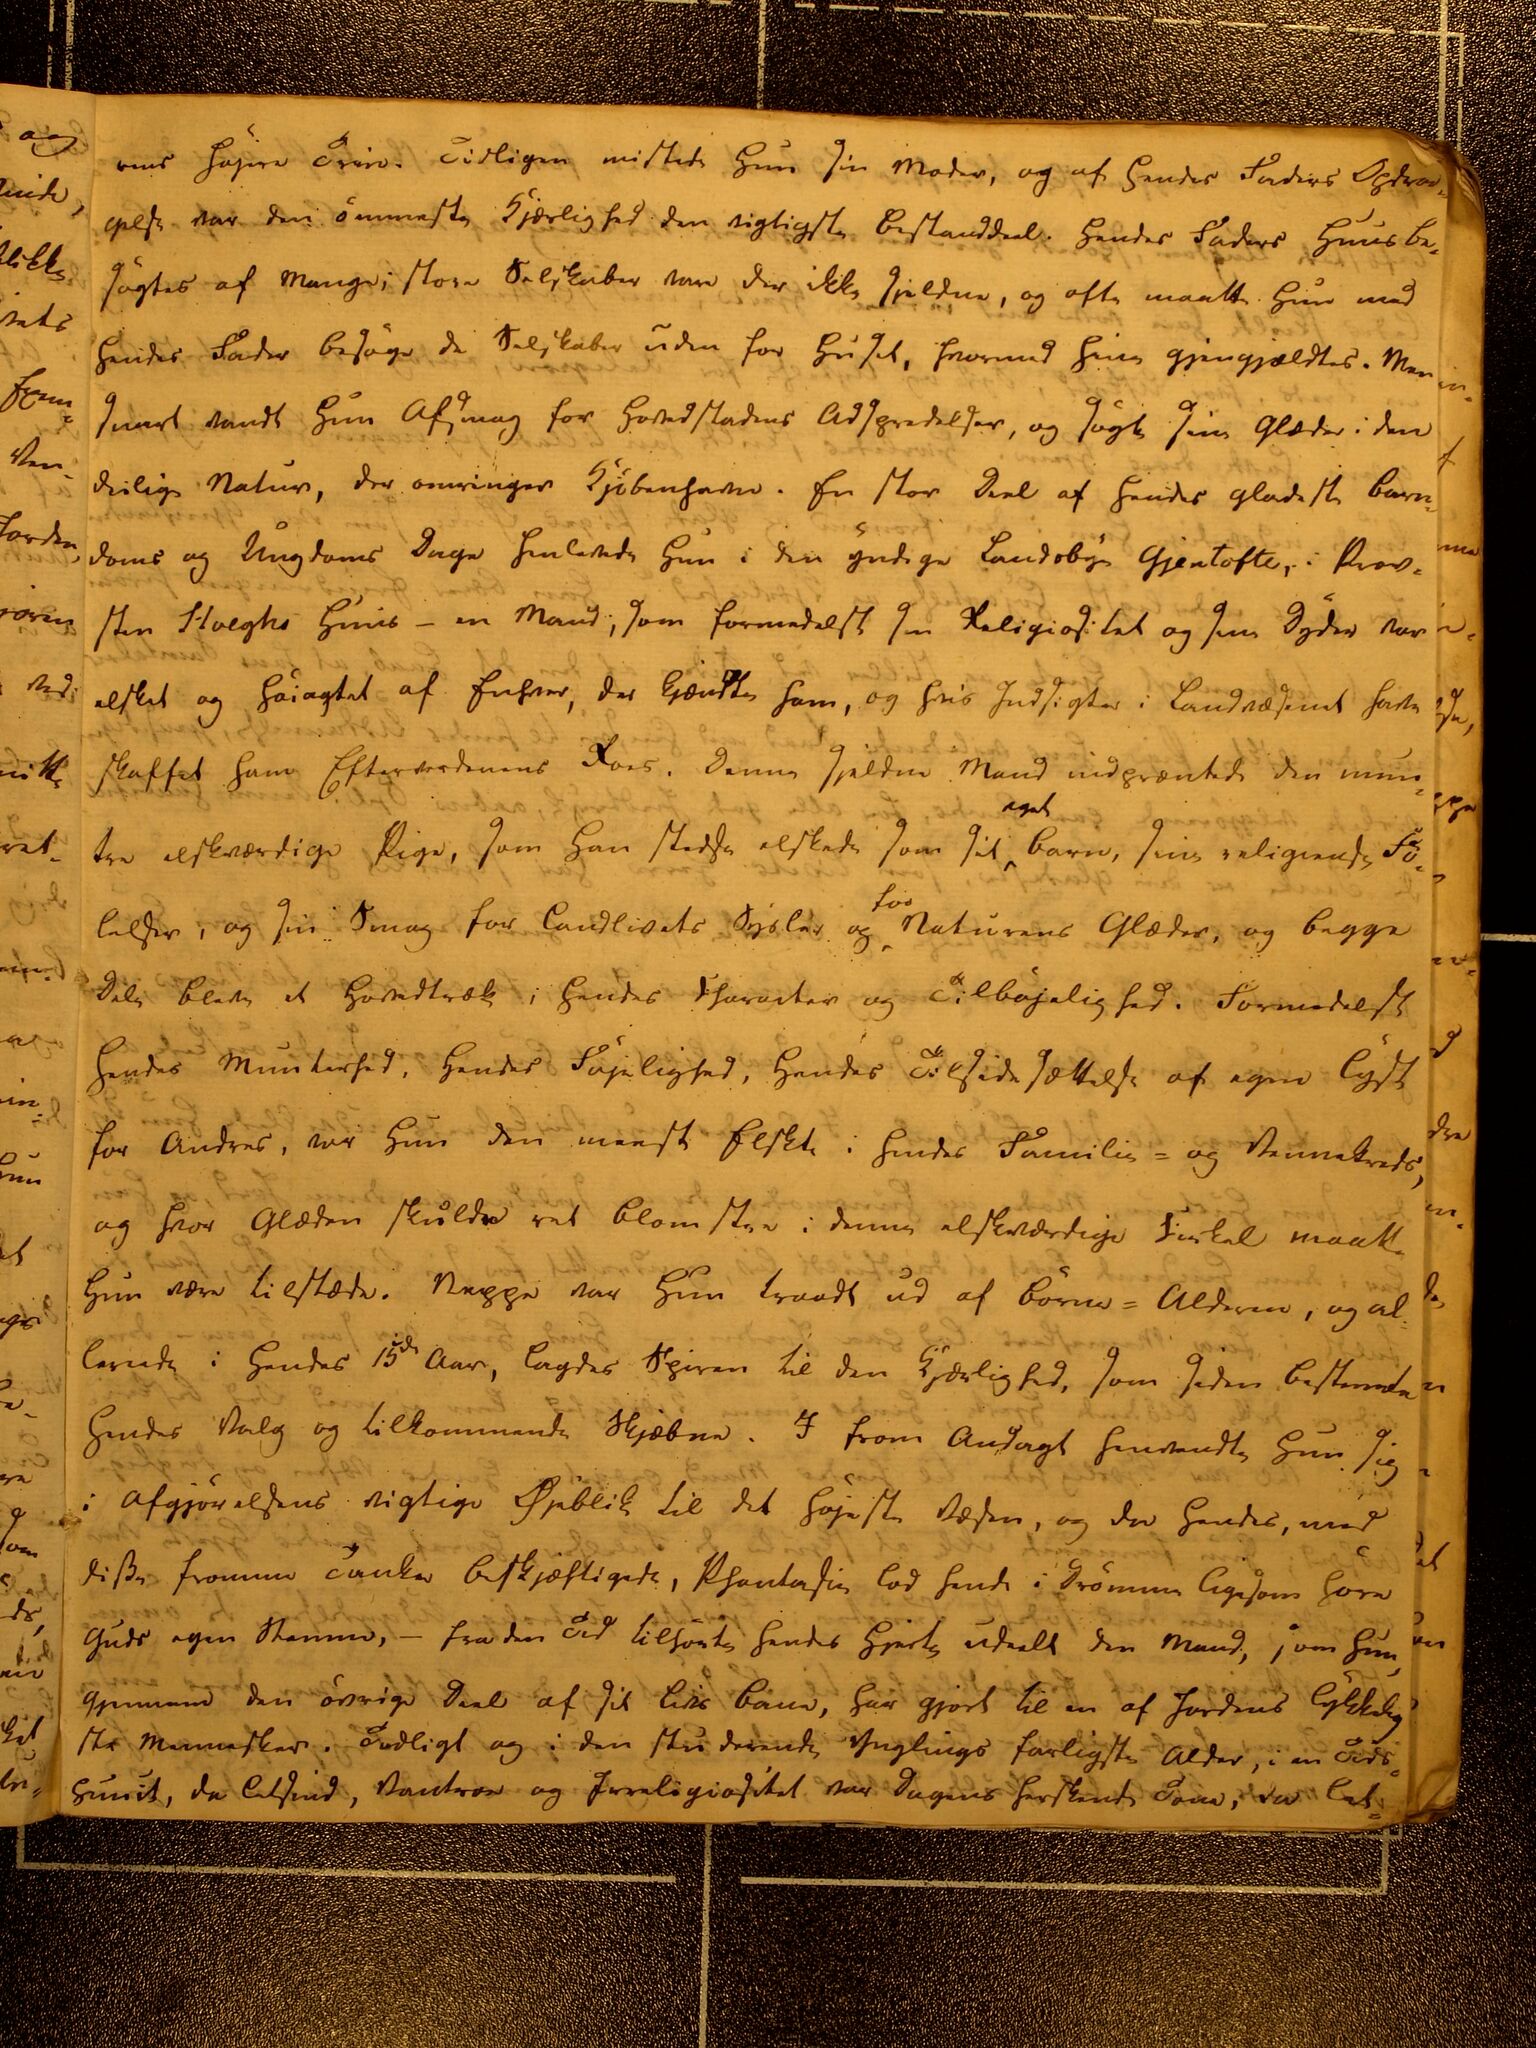 rens højere Trin. Tidligen mistede Hun sin Moder, og af Hendes Faders Opdra-
gelse var den ömmeste Kjærlighed den vigtigste Bestanddeel. Hendes Faders Huus be-
søgtes af Mange; store Selskaber vare der ikke sjeldne, og ofte maatte Hun med
Hendes Fader besøge de Selskaber uden for Huset, hvormed hine gjengjældtes. Men
snart vandt Hun Afsmag for Hovedstadens Adspredelser, og søgte sine Glæder i den
deilige Natur, der omringer Kjöbenhavn. En stor Deel af Hendes gladeste Barn-
doms og Ungdoms Dage henlevede Hun i den yndige Landsbye Gjentofte, i Prov-
sten Höeghs Huus – en Mand, som formedelst sin Religiositet og sine Dyder var
elsket og høiagtet af Enhver, der kjendte ham, og hvis Indsigter i Landvæsenet have
skaffet ham Efterverdenens Roes. Denne sjeldne Mand indpræntede den mun-
tre elskværdige Pige, som Han stedse elskede som sit eget Barn, sine religieuse Fö-
lelser, og sin Smag for Landlivets Sysler og for Naturens Glæder, og begge
Dele bleve et Hovedtræk i Hendes Character og Tilböjelighed. Formedelst
Hendes Munterhed, Hendes Føjelighed, Hendes Tilsidesættelse af egen Lyst
for Andres, var Hun den meest Elskte i Hendes Familie= og Vennekreds,
og hvor Glæden skulde ret blomstre i denne elskværdige Cirkel maatte
Hun være tilstæde. Neppe var Hun traadt ud af Börne=Alderen, og al-
lerede i Hendes 15de Aar, lagdes Spiren til den Kjærlighed, som siden bestemte
Hendes Valg og tilkommende Skjæbne. I from Andagt henvendte Hun sig
i Afgjörelsens vigtige Øjeblik til det højeste Væsen, og da Hendes, med
disse fromme Tanker beskjæftigede, Phantasie lod hende i Drömme ligesom høre
Guds egen Stemme, – fra den Tid tilhørte Hendes Hjerte udeelt den Mand, som Hun,
gjennem den övrige Deel af sit Livs Bane, har gjort til en af Jordens lykkelig
ste Mennesker. Trolligt og i den studerende Ynglings farligste Alder, i en Tids-
punct, da Letsind, Vantroe og Irreligiositet var Dagens herskende Tone, da Let-